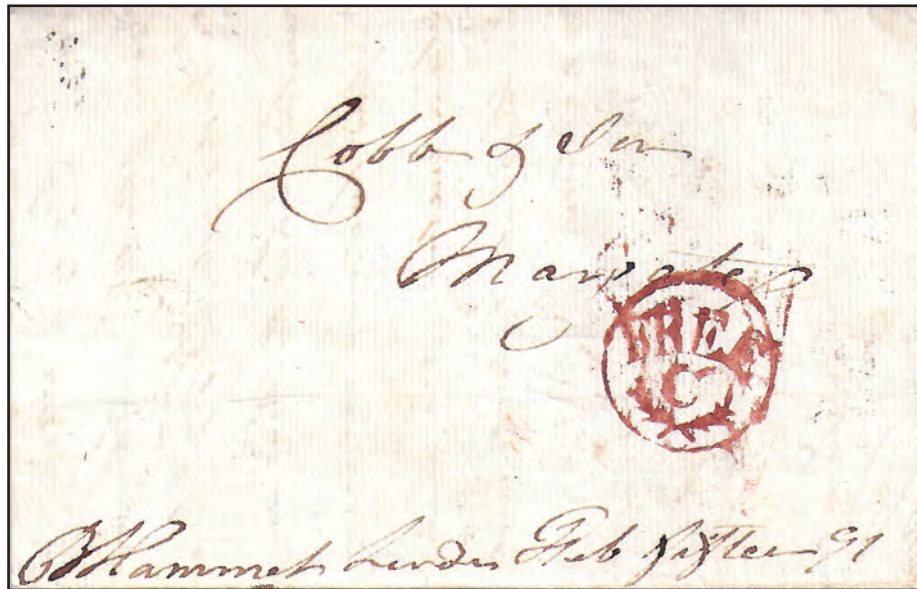 Cobb & Son
Margate
FREE
C
BHammet London Feb fifteen 91